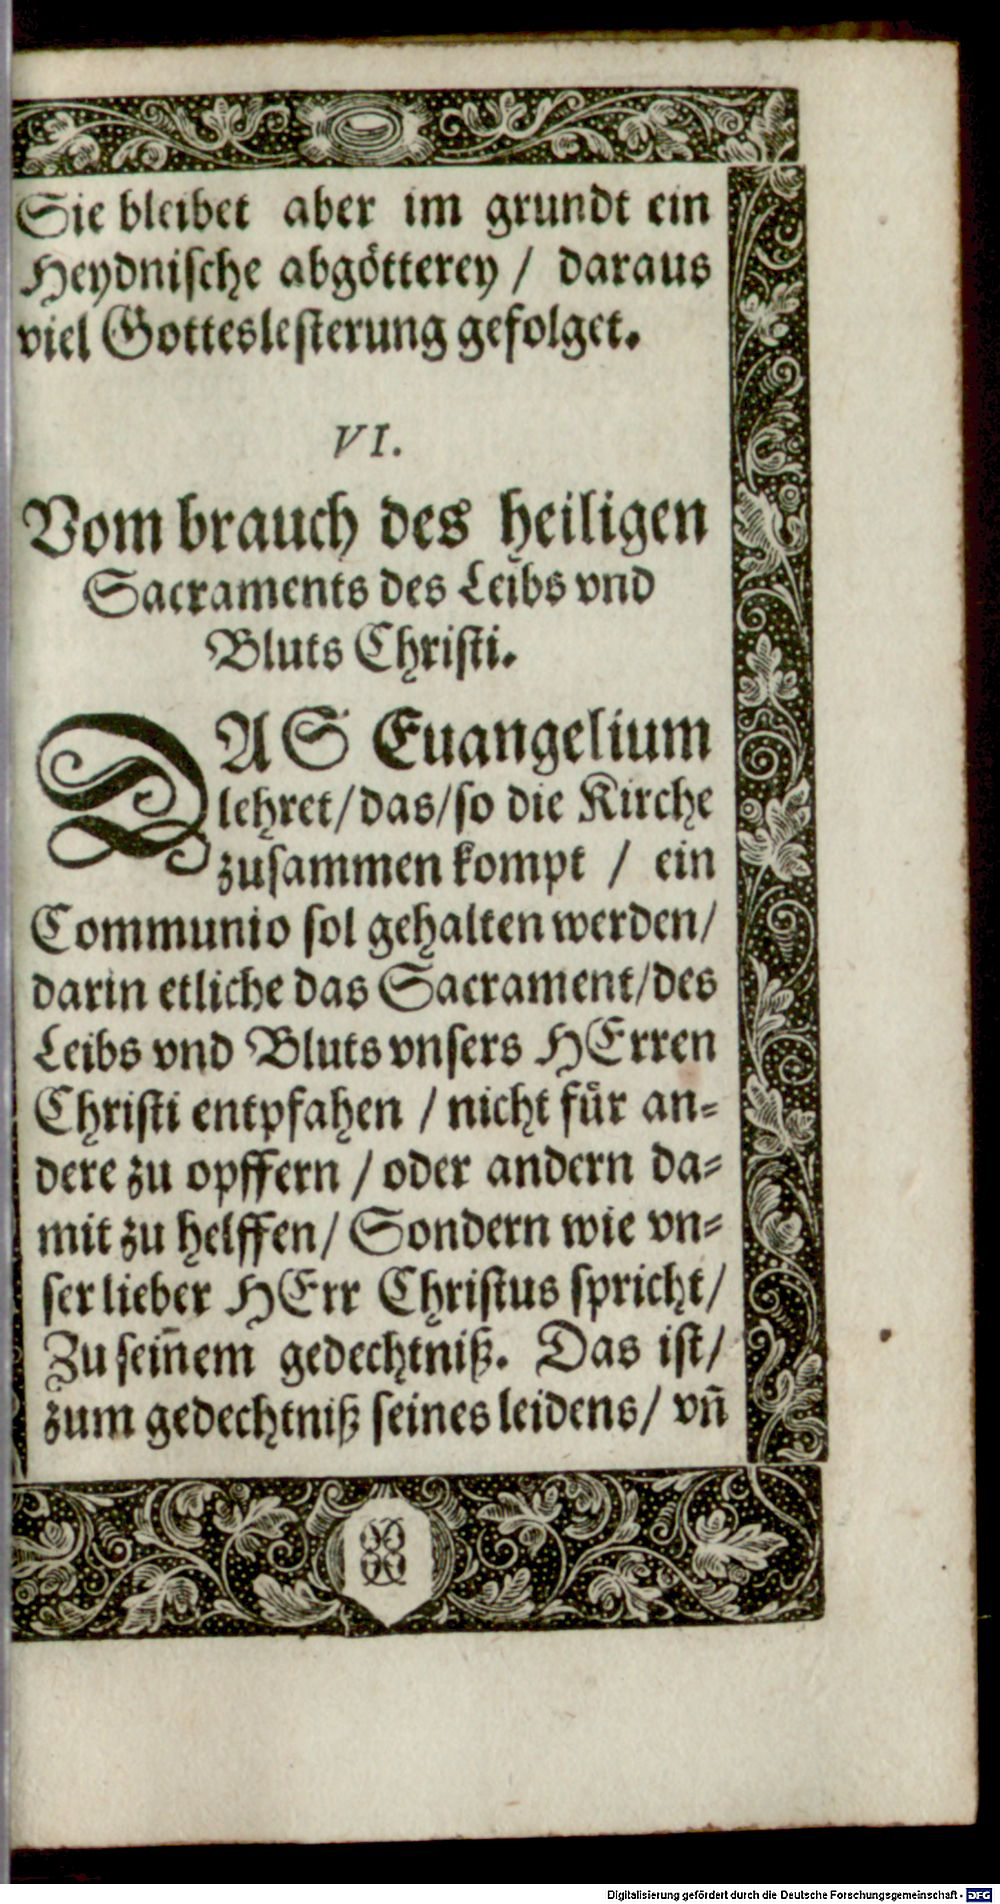 Sie bleibet aber im grundt ein
Heydnische abgötterey / daraus
viel Gotteslesterung gefolget.
VI.
Vom brauch des heiligen
Sacraments des Leibs vnd
Bluts Christi.
DAS Euangelium
lehret/das/so die Kirche
zusammen kompt / ein
Communio sol gehalten werden/
darin etliche das Sacrament/des
Leibs vnd Bluts vnsers HErren
Christi entpfahen / nicht für an-
dere zu opffern / oder andern da-
mit zu helffen/ Sondern wie vn-
ser lieber HErr Christus spricht/
Zu sein̄em gedechtniß. Das ist/
zum gedechtniß seines leidens/ vn̄
Digitalisierung gefördert durch die Deutsche Forschungsgemeinschaft - DFG